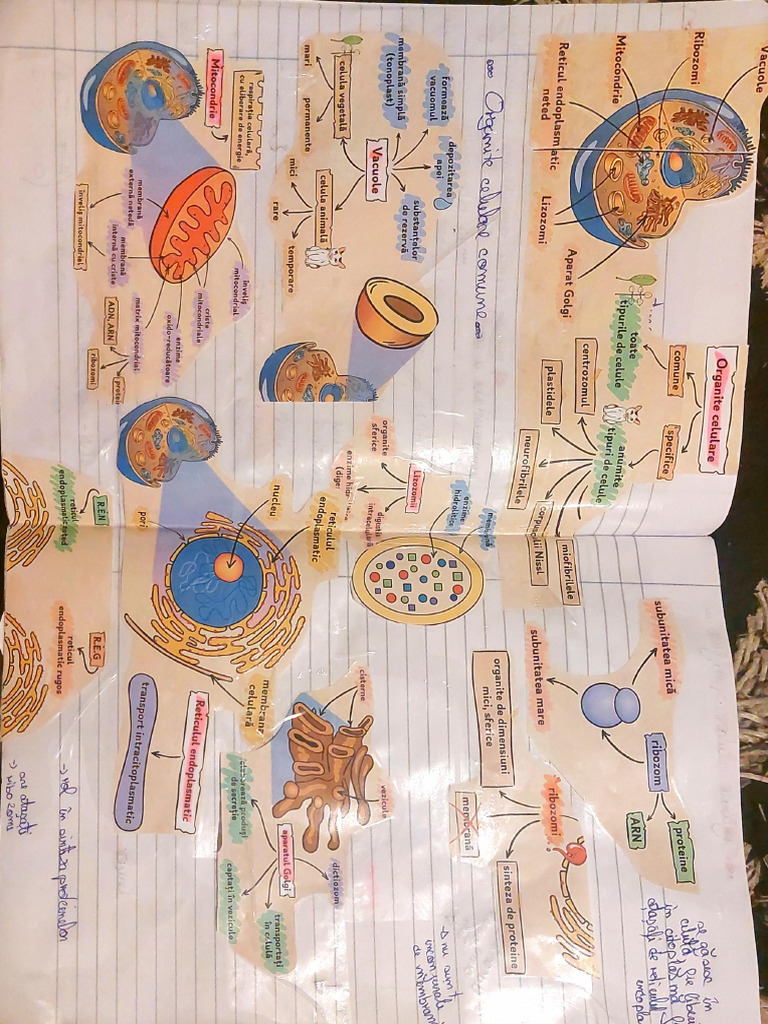 Vacuole
Ribozomi
Mitocondrie
Reticul endoplasmatic
neted
Lizozomi
Aparat Golgi
Organite celulare
comune
specifice
toate
tipurile de celule
anumite
tipuri de celule
centrozomul
plastidele
neurofibrilele
corpusculii Nissl
miofibrilele
Organite celulare comune
formează
vacuomul
membrană simplă
(tonoplast)
depozitarea
apei
substanțelor
de rezervă
Vacuole
celula vegetală
mari
permanente
celula animală
mici
rare
temporare
respirația celulară,
cu eliberare de energie
Mitocondrie
membrană
externă netedă
membrană
internă cu criste
înveliș mitocondrial
înveliș
mitocondrial
criste
mitocondriale
enzime
oxido-reducătoare
matrix mitocondrial
ADN, ARN
ribozomi
subunitatea mică
subunitatea mare
ribozom
proteine
ARN
se găsesc în
în citoplasmă
atașați de reticulul
ribozomi
organite de dimensiuni
mici, sferice
membrană
sinteza de proteine
→ nu sunt
de membrană
membrană
enzime
hidrolitice
Lizozomii
organite
sferice
digestia
intracelulară
reticulul
endoplasmatic
nucleu
pori
membrana
celulară
Reticulul endoplasmatic
transport intracitoplasmatic
R.E.N
reticul
endoplasmatic neted
R.E.G
reticul
endoplasmatic rugos
→ rol în sinteza proteinelor
→ are atașați
ribozomi
cisterne
vezicule
aparatul Golgi
dictiozom
elaborează produși
de secreție
captați în vezicule
transportați
în celulă